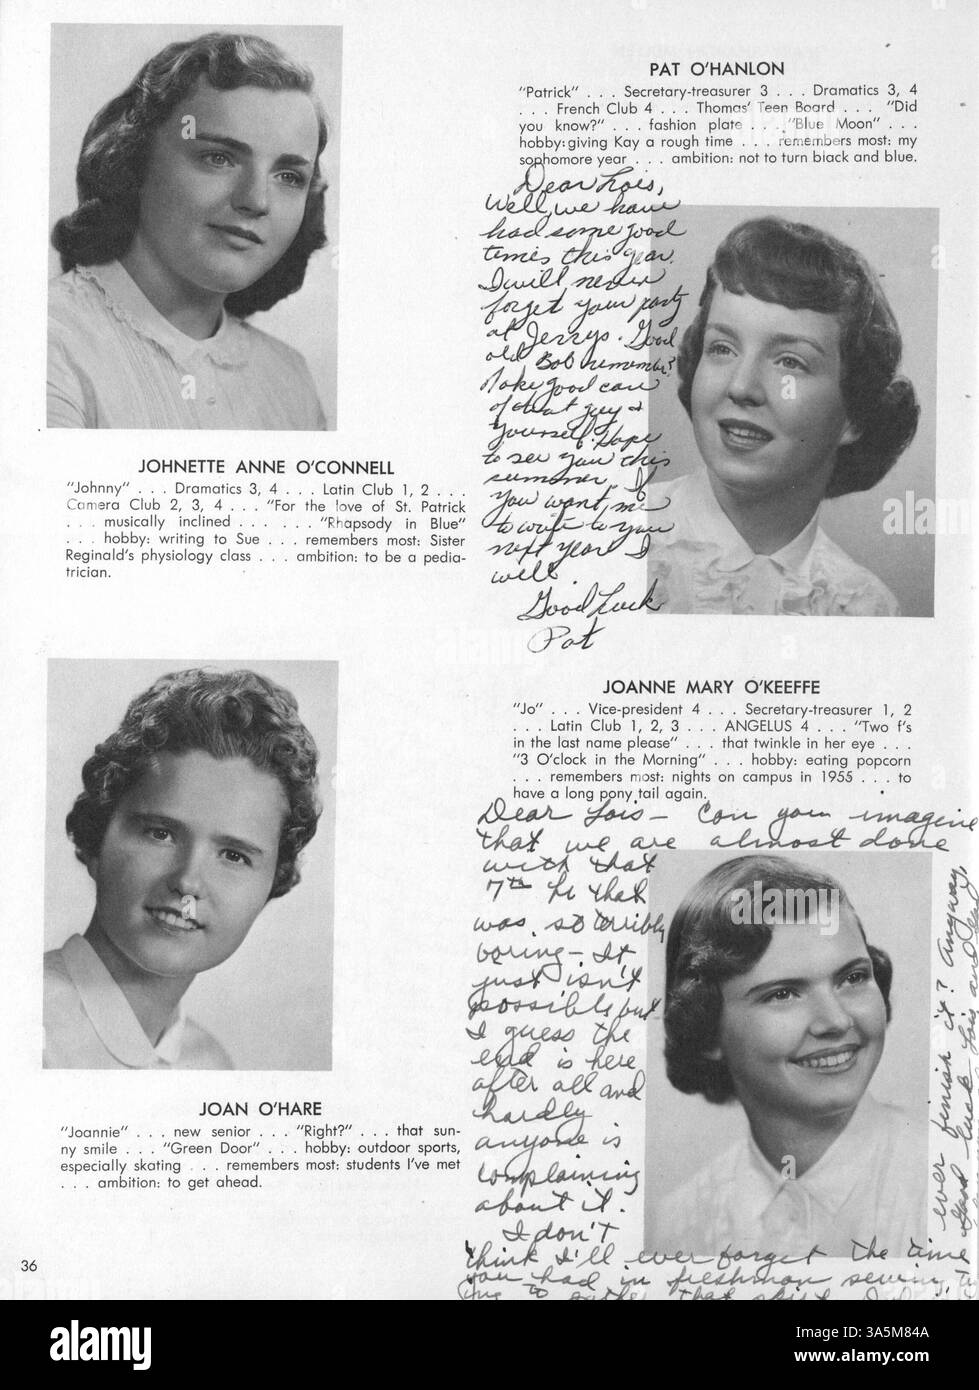 PAT O'HANLON
"Patrick" . . . Secretary-treasurer 3 . . . Dramatics 3, 4
. . . French Club 4 . . . Thomas' Teen Board . . . "Did
you know?" . . . fashion plate . . . "Blue Moon" . . .
hobby: giving Kay a rough time . . . remembers most: my
sophomore year . . . ambition: not to turn black and blue.
Dear Lois,
Well, we have
had some good
times this year.
I will never
forget your party
at Jerrys. Good
old Bob remember?
Take good care
of that guy &
yourself. Hope
to see you this
summer. If
you want me
to write to you
next year I
will.
Good Luck
Pat
JOHNETTE ANNE O'CONNELL
"Johnny" . . . Dramatics 3, 4 . . . Latin Club 1, 2 . . .
Camera Club 2, 3, 4 . . . "For the love of St. Patrick
. . . musically inclined . . . . . . "Rhapsody in Blue"
. . . hobby: writing to Sue . . . remembers most: Sister
Reginald's physiology class . . . ambition: to be a pedia-
trician.
JOANNE MARY O'KEEFFE
"Jo" . . . Vice-president 4 . . . Secretary-treasurer 1, 2
. . . Latin Club 1, 2, 3 . . . ANGELUS 4 . . . "Two f's
in the last name please" . . . that twinkle in her eye . . .
"3 O'clock in the Morning" . . . hobby: eating popcorn
. . . remembers most: nights on campus in 1955 . . . to
have a long pony tail again.
Dear Lois – Can you imagine
that we are almost done
with that
7th hr that
was so terribly
boring – It
just isn't
possible but
I guess the
end is here
after all and
hardly
anyone is
complaining
about it.
I don't
think I'll ever forget the time
you had in freshman sewing
to gather that skirt
ever finish it? Anyway
good luck Lois and
JOAN O'HARE
"Joannie" . . . new senior . . . "Right?" . . . that sun-
ny smile . . . "Green Door" . . . hobby: outdoor sports,
especially skating . . . remembers most: students I've met
. . . ambition: to get ahead.
36
alamy
Image ID: 3A5M84A
www.alamy.com